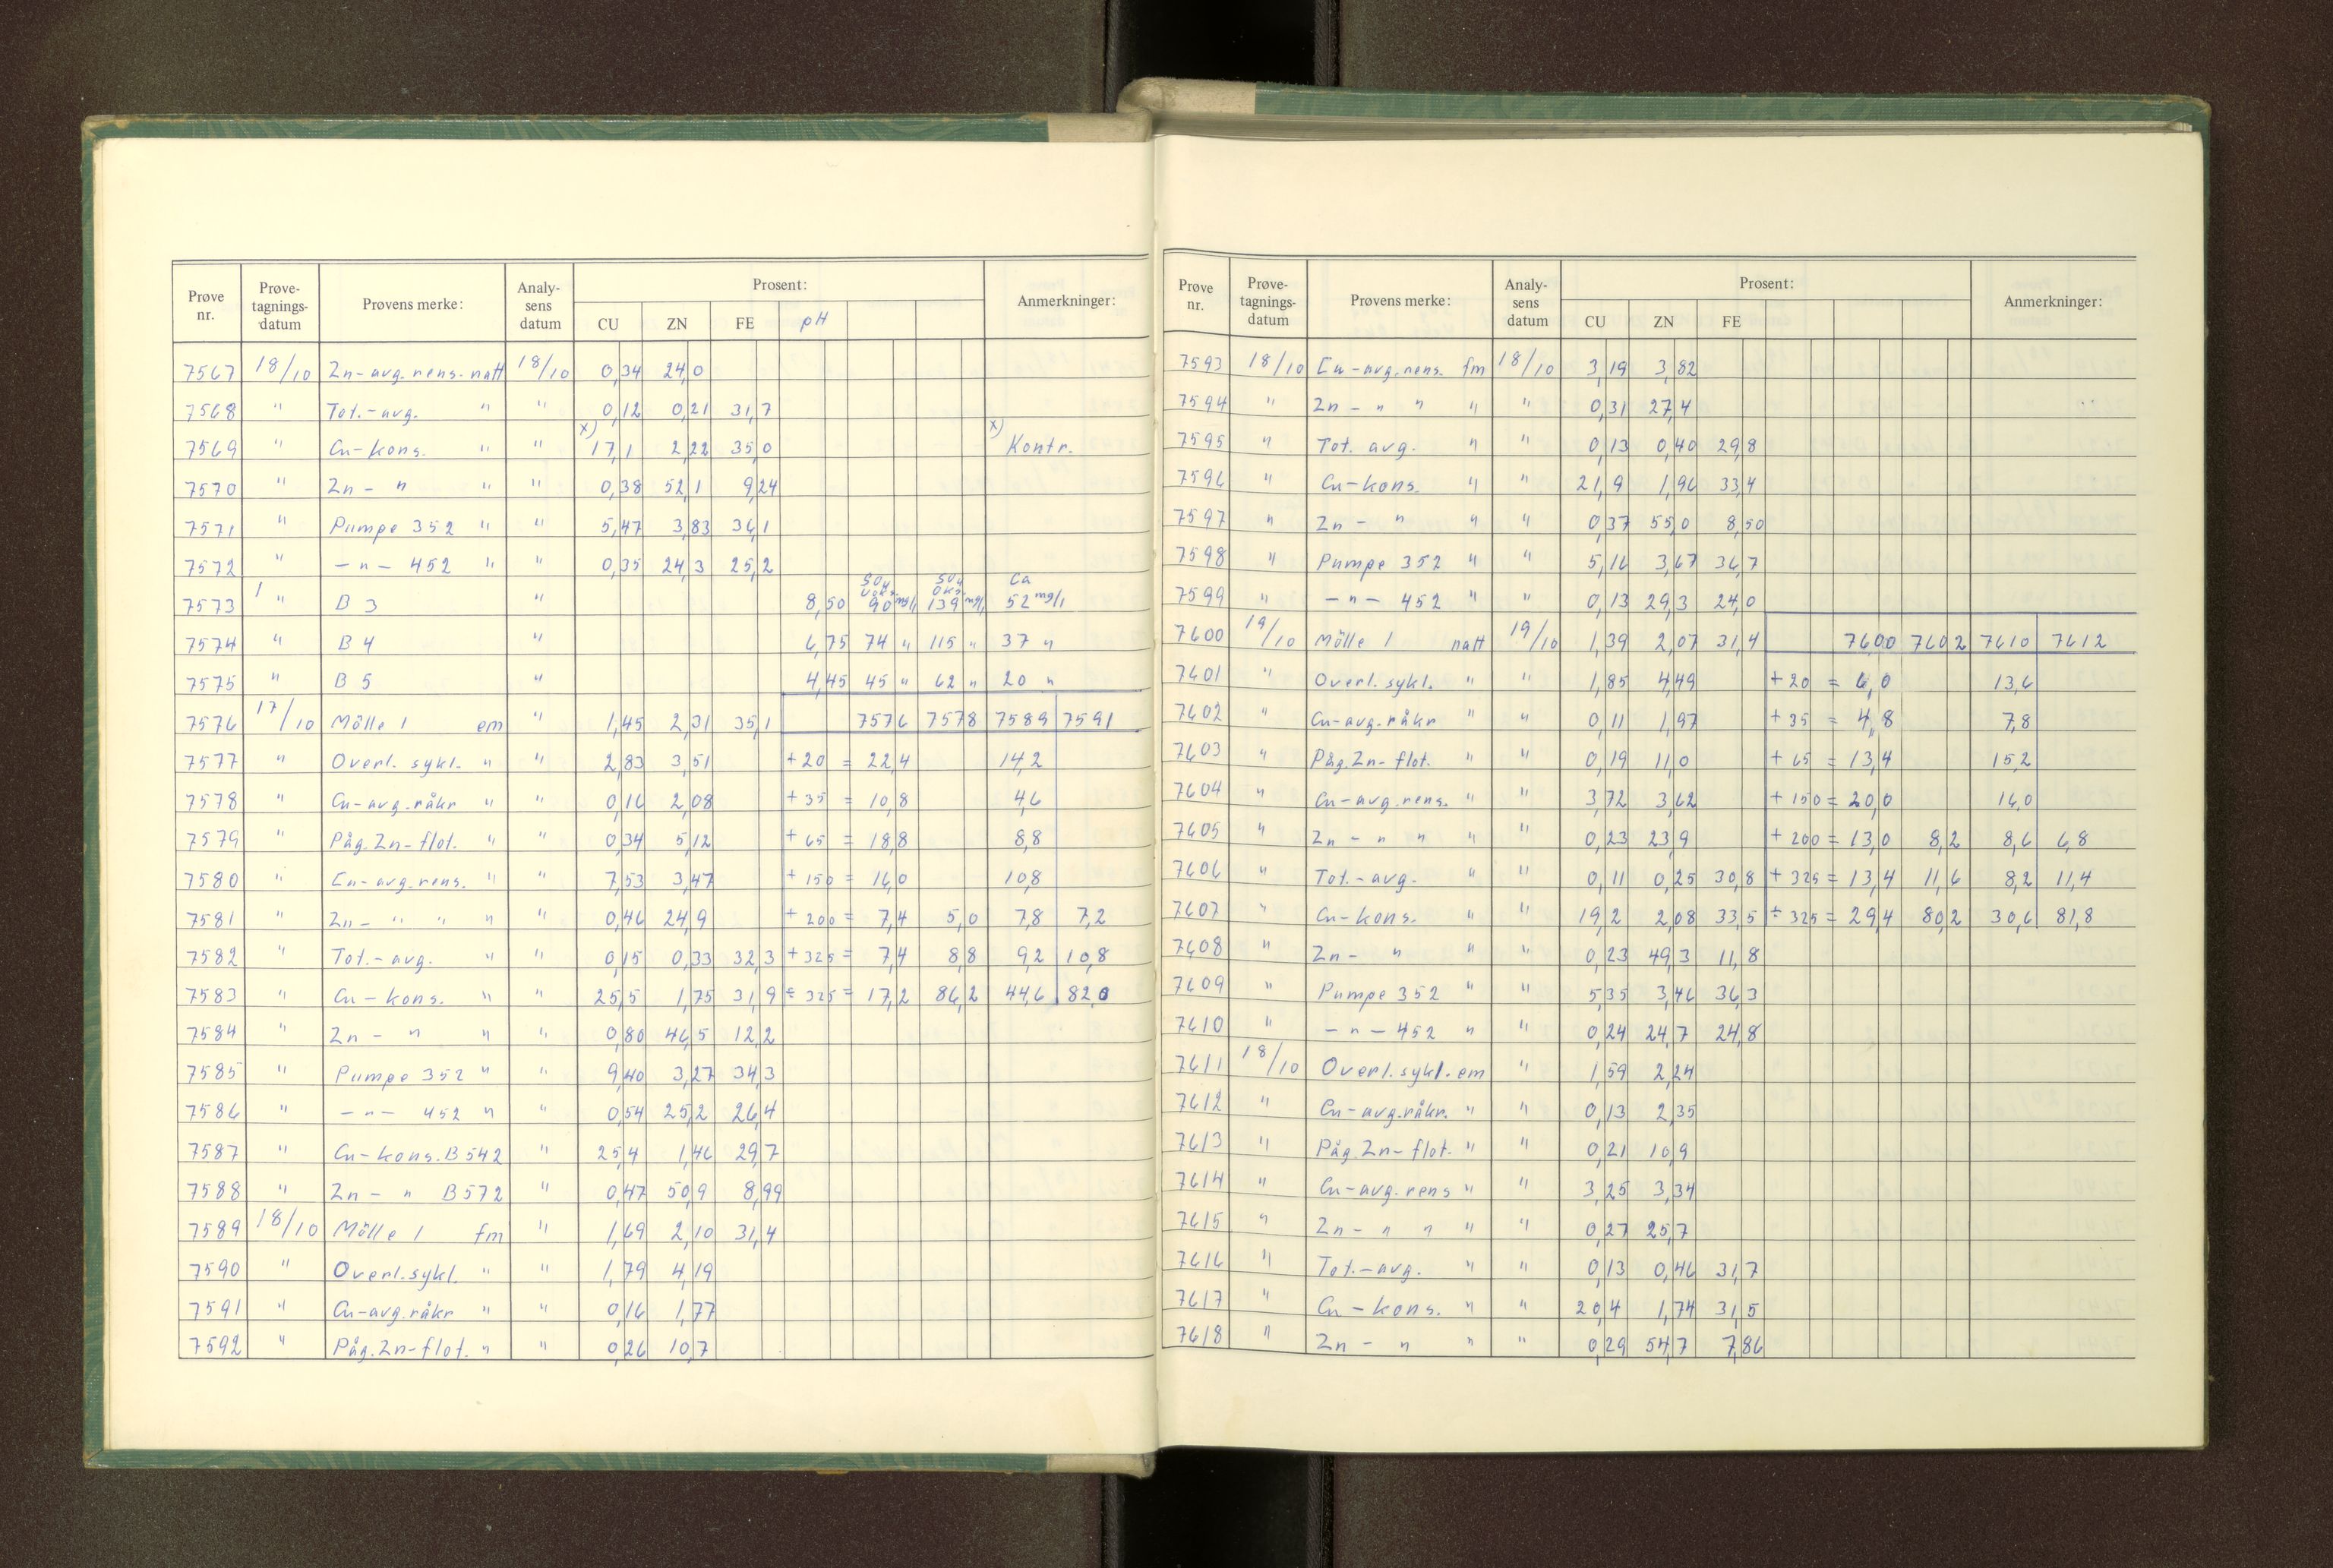 Prøve nr. Prøve-tagnings-datum Prøvens merke: Analy-sens datum Prosent: CU ZN FE pH Anmerkninger:
7567 18/10 Zn-avg.rens. natt 18/10 0,34 24,0
7568 " Tot.-avg. " " 0,12 0,21 31,7
7569 " Cu-kons. " " x) 17,1 2,22 35,0 x) Kontr.
7570 " Zn- " " " 0,38 52,1 9,24
7571 " Pumpe 352 " " 5,47 3,83 36,1
7572 " -"- 452 " " 0,35 24,3 25,2
7573 " B 3 " 8,50 SO4 90 mg/l SO4 oks. 139 mg/l Ca 52 mg/l
7574 " B 4 " 6,75 74 " 115 " 37 "
7575 " B 5 " 4,45 45 " 62 " 20 "
7576 17/10 Mölle 1 em " 1,45 2,31 35,1 7576 7578 7589 7591
7577 " Overl. sykl. " " 2,83 3,51 +20 = 22,4 14,2
7578 " Cu-avg.råkr " " 0,16 2,08 +35 = 10,8 4,6
7579 " Påg.Zn-flot. " " 0,34 5,12 +65 = 18,8 8,8
7580 " Cu-avg.rens. " " 7,53 3,47 +150 = 16,0 10,8
7581 " Zn- " " " " 0,46 24,9 +200 = 7,4 5,0 7,8 7,2
7582 " Tot.-avg. " " 0,15 0,33 32,3 +325 = 7,4 8,8 9,2 10,8
7583 " Cu-kons. " " 25,5 1,75 31,9 ÷325 = 17,2 86,2 44,6 82,0
7584 " Zn- " " " 0,80 46,5 12,2
7585 " Pumpe 352 " " 9,40 3,27 34,3
7586 " -"- 452 " " 0,54 25,2 26,4
7587 " Cu-kons. B 542 " 25,4 1,46 29,7
7588 " Zn- " B 572 " 0,47 50,9 8,99
7589 18/10 Mölle 1 fm " 1,69 2,10 31,4
7590 " Overl.sykl. " " 1,79 4,19
7591 " Cu-avg.råkr " " 0,16 1,77
7592 " Påg.Zn-flot. " " 0,26 10,7
Prøve nr. Prøve-tagnings-datum Prøvens merke: Analy-sens datum Prosent: CU ZN FE Anmerkninger:
7593 18/10 Cu-avg.rens. fm 18/10 3,19 3,82
7594 " Zn- " " " " 0,31 27,4
7595 " Tot. avg. " " 0,13 0,40 29,8
7596 " Cu-kons. " " 21,9 1,96 33,4
7597 " Zn- " " " 0,37 55,0 8,50
7598 " Pumpe 352 " " 5,16 3,67 36,7
7599 " -"- 452 " " 0,13 29,3 24,0
7600 19/10 Mölle 1 natt 19/10 1,39 2,07 31,4 7600 7602 7610 7612
7601 " Overl.sykl. " " 1,85 4,49 +20 = 6,0 13,6
7602 " Cu-avg.råkr " " 0,11 1,97 +35 = 4,8 7,8
7603 " Påg.Zn-flot. " " 0,19 11,0 +65 = 13,4 15,2
7604 " Cu-avg.rens. " " 3,72 3,62 +150 = 20,0 16,0
7605 " Zn- " " " " 0,23 23,9 +200 = 13,0 8,2 8,6 6,8
7606 " Tot.-avg. " " 0,11 0,25 30,8 +325 = 13,4 11,6 8,2 11,4
7607 " Cu-kons. " " 19,2 2,08 33,5 ÷325 = 29,4 80,2 30,6 81,8
7608 " Zn- " " " 0,23 49,3 11,8
7609 " Pumpe 352 " " 5,35 3,46 36,3
7610 " -"- 452 " " 0,24 24,7 24,8
7611 18/10 Overl.sykl. em " 1,59 2,24
7612 " Cu-avg.råkr. " " 0,13 2,35
7613 " Påg.Zn-flot. " " 0,21 10,9
7614 " Cu-avg.rens " " 3,25 3,34
7615 " Zn- " " " " 0,27 25,7
7616 " Tot.-avg. " " 0,13 0,46 31,7
7617 " Cu-kons. " " 20,4 1,74 31,5
7618 " Zn- " " " 0,29 54,7 7,86